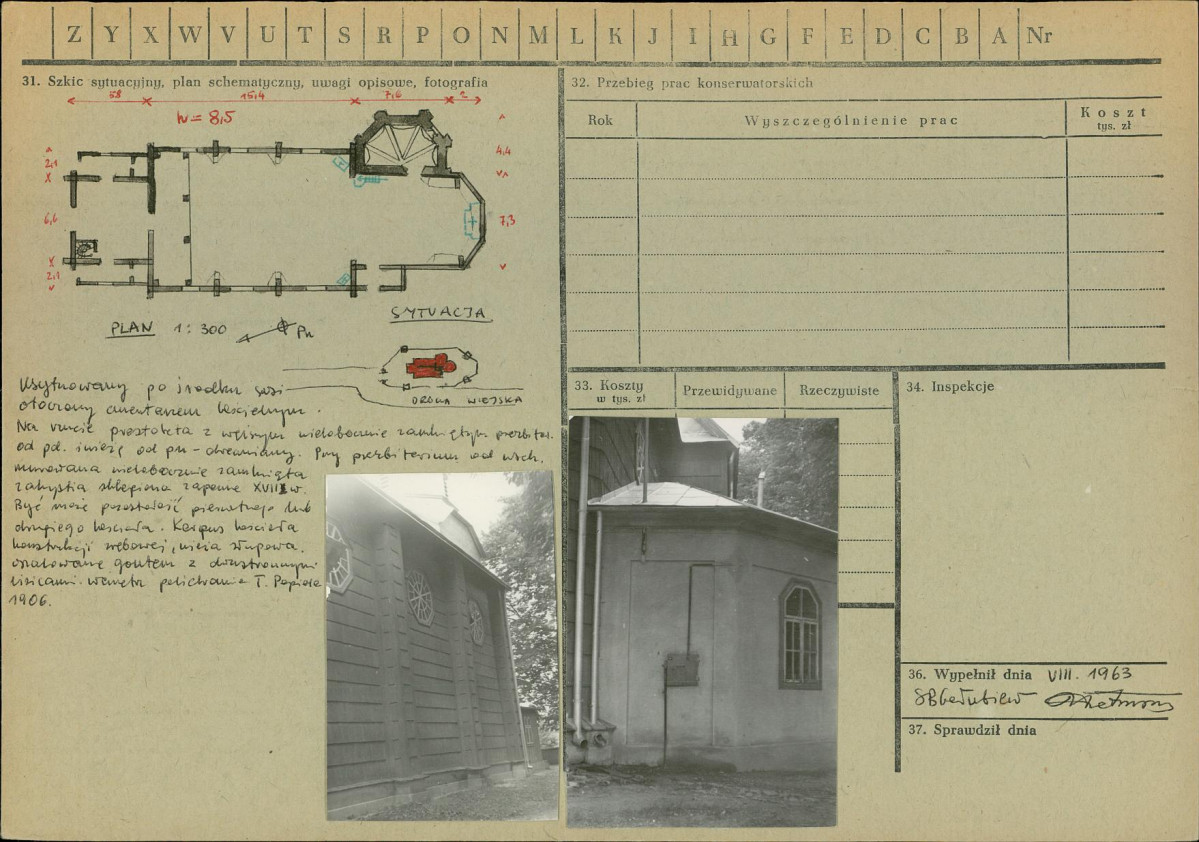 Z Y X W V U T S R P O N M L K J I H G F E D C B A Nr
31. Szkic sytuacyjny, plan schematyczny, uwagi opisowe, fotografia
58 15,4 7,6 2
h = 8,5
2,1
6,6
2,1
4,4
7,3
PLAN 1 : 300 Pn
SYTUACJA
DROGA WIEJSKA
Usytuowany po środku wsi
otoczony cmentarzem kościelnym.
Na rzucie prostokąta z węższym wielobocznie zamkniętym prezbiter.
od pd. i wieżą od pn - drewniany. Przy prezbiterium od wsch.
murowana wielobocznie zamknięta
zakrystia sklepiona zapewne XVIII w.
Być może pozostałość pierwotnego lub
drugiego kościoła. Korpus kościoła
konstrukcji zrębowej, wieża słupowa.
oszalowane gontem z dwustronnymi
lisicami. wewnątrz polichromia T. Popiela
1906.
32. Przebieg prac konserwatorskich
Rok Wyszczególnienie prac Koszt
tys. zł
33. Koszty Przewidywane Rzeczywiste
w tys. zł
34. Inspekcje
36. Wypełnił dnia VIII. 1963
37. Sprawdził dnia